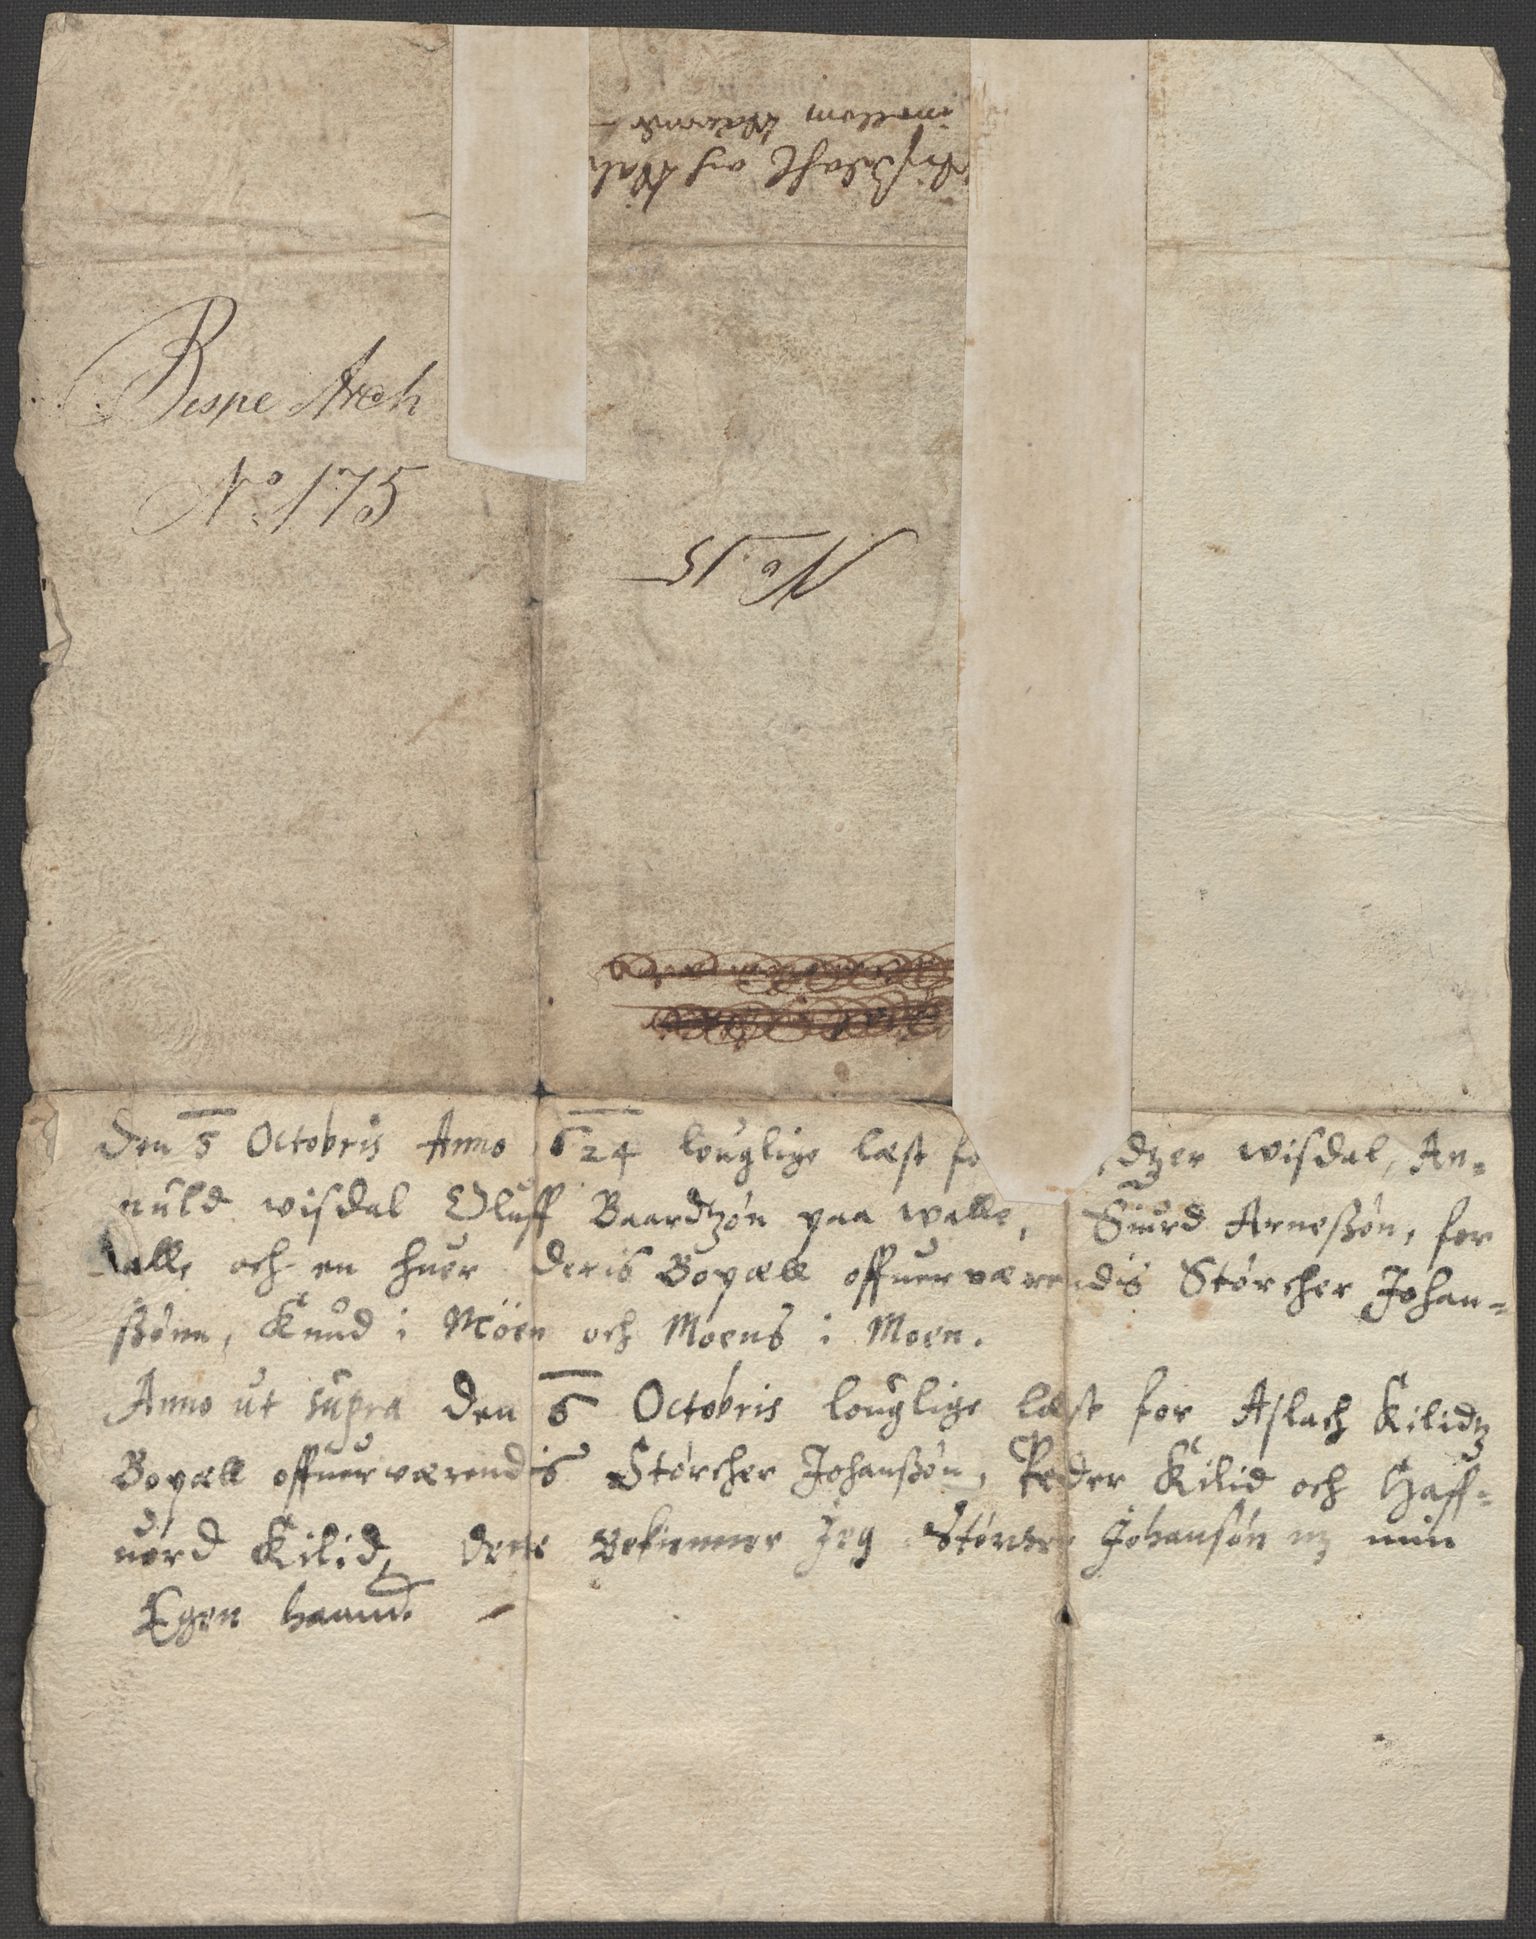 imellom
och
Bispe Arch
No 175
No. 15
den 5 Octobris Anno 624 louglige læst fo dtzer wisdal, An=
nuld wisdal Oluff Baardtzøn paa walle, Siurd Arneßøn, for
alle och en huer deris Bopæll offuerværendis Størcher Johan=
ßønn, Knud i Möen och Moens i Moen.
Anno ut supra den 6 Octobris louglige læst for Aslach Kilidtz
Bopæll offuerværendis Størcher Johanßøn, Peder Kilid och Haff=
uord Kilid, dette bekienner Jeg Størcker Johansøn m min
Egen haannd.